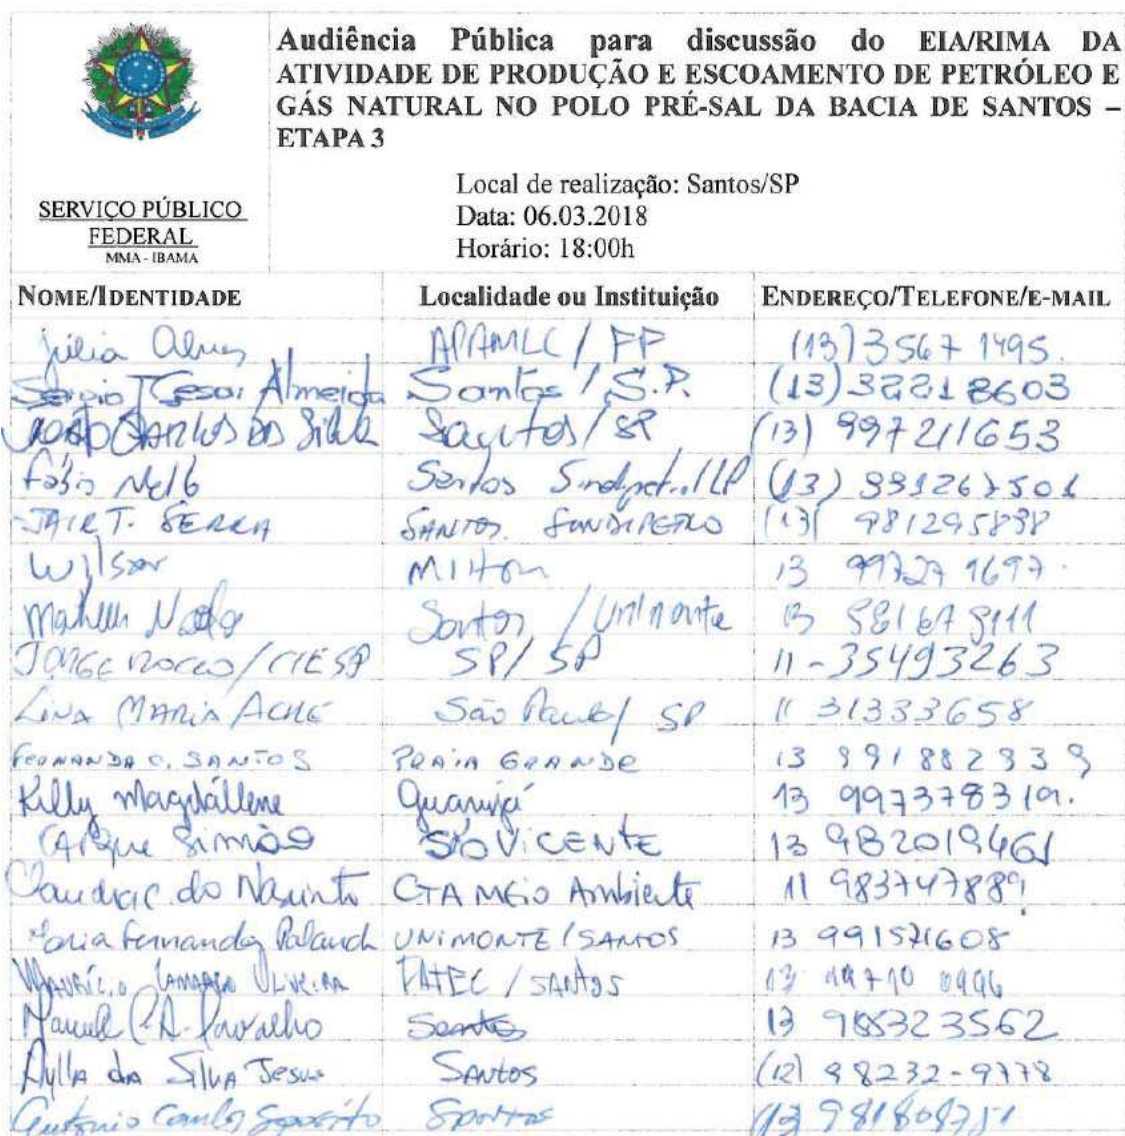 Audiência Pública para discussão do EIA/RIMA DA
ATIVIDADE DE PRODUÇÃO E ESCOAMENTO DE PETRÓLEO E
GÁS NATURAL NO POLO PRÉ-SAL DA BACIA DE SANTOS –
ETAPA 3
SERVIÇO PÚBLICO
FEDERAL
MMA - IBAMA
Local de realização: Santos/SP
Data: 06.03.2018
Horário: 18:00h
NOME/IDENTIDADE Localidade ou Instituição ENDEREÇO/TELEFONE/E-MAIL
Júlia Alves APAMLC / FF (13) 3567 1495
Sergio T Cesar Almeida Santos / S.P. (13) 32218603
JOÃO CARLOS DA Silva Santos / SP (13) 997211653
Fábio Mello Santos Sindipetro/LP
JAIR T. SERRA SANTOS (13) 981295898
Wilson Milton 13
Santos / Unimonte 13
JORGE ROCCO / CIESP SP/SP 11-35493263
LINA MARIA ACHÉ São Paulo / SP 11 31333658
FERNANDA C. SANTOS PRAIA GRANDE 13 991882939
Killy Magdállene Guarujá 13 997378319.
Simão SÃO VICENTE 13 982019461
do CTA MEIO Ambiente 11 983747889
Maria Fernanda UNIMONTE / SANTOS 13 991571608
MAURÍCIO CAMARGO OLIVEIRA FATEC / SANTOS 13
Carvalho Santos 13 988323562
Aylla da Silva Jesus SANTOS 98232-9778
Antonio Carlos Santos 981808751